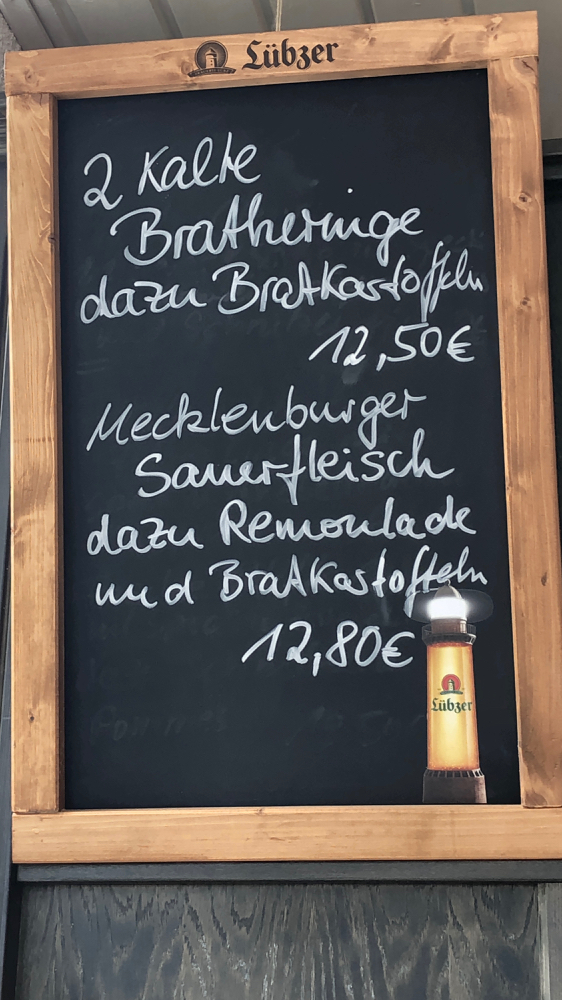 Lübzer
2 Kalte
Bratheringe
dazu Bratkartoffeln
12,50€
Mecklenburger
Sauerfleisch
dazu Remoulade
und Bratkartoffeln
12,80€
Lübzer
Pommes